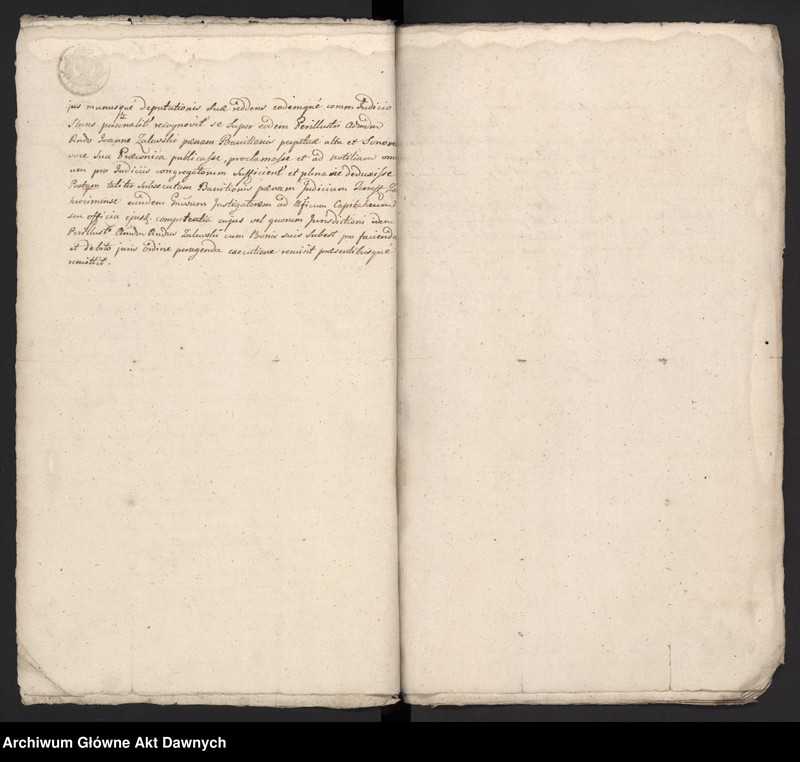 jus munusqué deputationis suæ reddens eodemqué coram Judicio
Stans psonalit recognovit se super eodem Perillustri Admdm
Andō Joanne Zalewski pænam Bannitionis perpetuæ alta et Sonora
voce sua Præconica publicasse, proclamasse et ad notitiam omn
um pro Judiciis congregatorum sufficient et plenarie deduxisse
Postqm taliter subsecutam Bannitionis pænam Judicium Terrest
hocimense eundem Instigatorem ad Officium Capitaneum
seu officia ejusd. competentia cujus vel quorum Jurisdictioni idem
Perillustr Admdm Andus Zalewski cum Bonis suis subest pro facienda
et debito juris ordine peragenda executione remisit præsentibusque
remittit.
Archiwum Główne Akt Dawnych